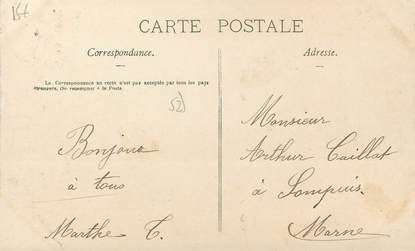 CARTE POSTALE
Correspondance.
Adresse.
La Correspondance au recto n'est pas acceptée par tous les pays
étrangers. (Se renseigner à la Poste
52
Bonjour
à tous
Marthe T.
Monsieur
Arthur Caillat
à Sompuis.
Marne